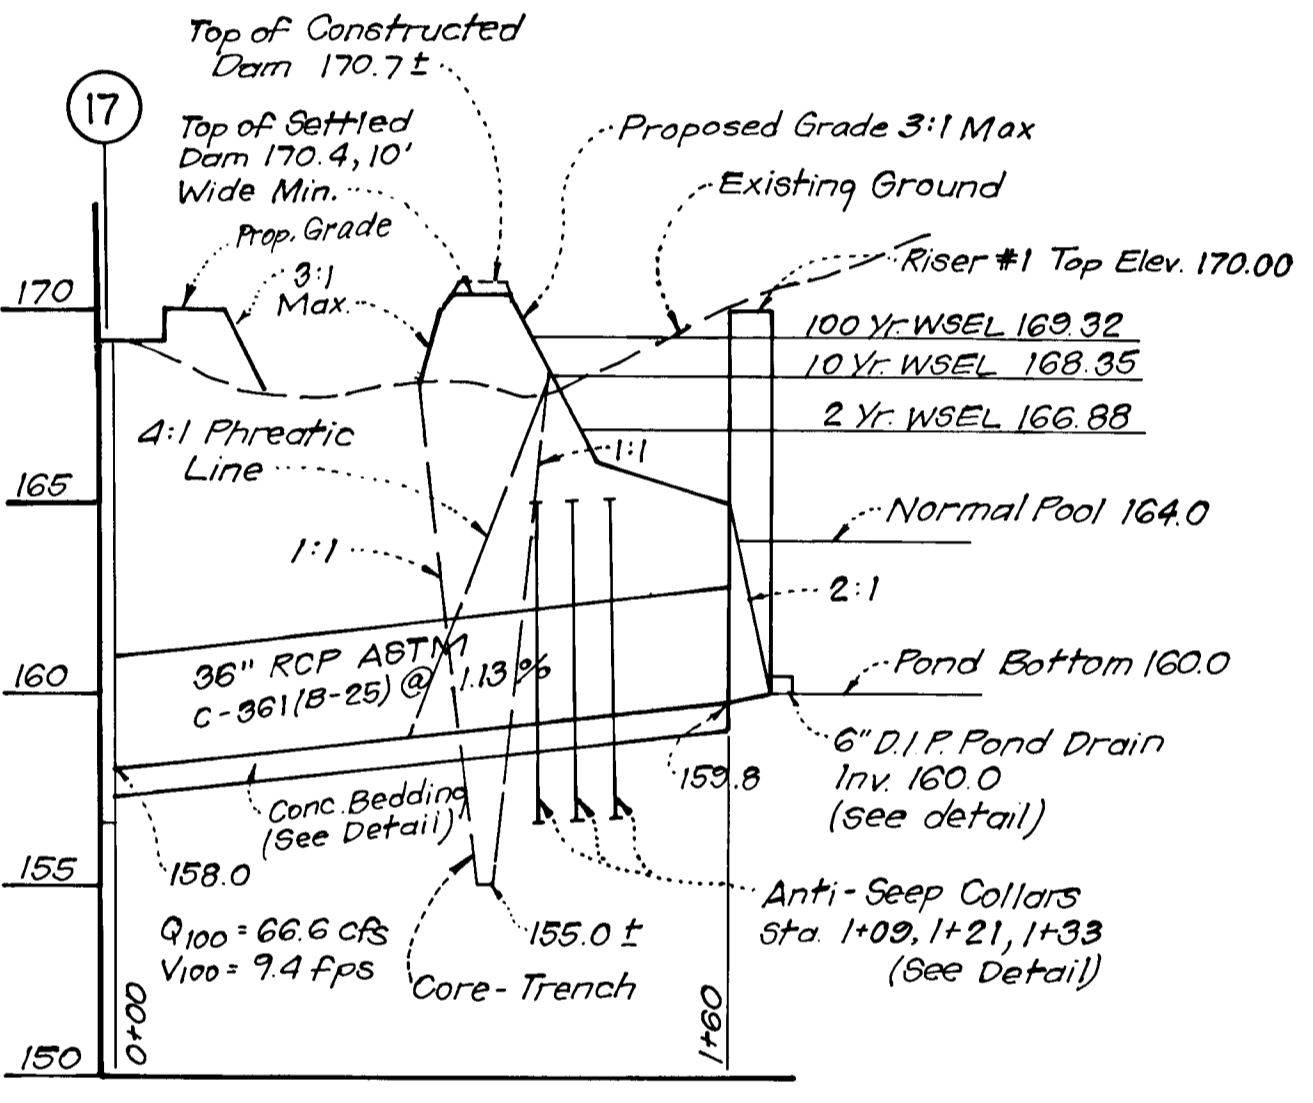 Top of Constructed
Dam 170.7 ±
17
Top of Settled
Dam 170.4, 10'
Wide Min.
Proposed Grade 3:1 Max
Existing Ground
Prop. Grade
3:1
Max.
Riser #1 Top Elev. 170.00
170
100 Yr. WSEL 169.32
10 Yr. WSEL 168.35
2 Yr. WSEL 166.88
4:1 Phreatic
Line
1:1
165
Normal Pool 164.0
1:1
2:1
36" RCP ASTM
C-361 (B-25) @ 1.13 %
160
Pond Bottom 160.0
6" D.I.P. Pond Drain
Inv. 160.0
(see detail)
159.8
Conc. Bedding
(See Detail)
158.0
155
Anti-Seep Collars
Sta. 1+09, 1+21, 1+33
(See Detail)
Q100 = 66.6 cfs
V100 = 9.4 fps
155.0 ±
Core-Trench
0+00
1+60
150